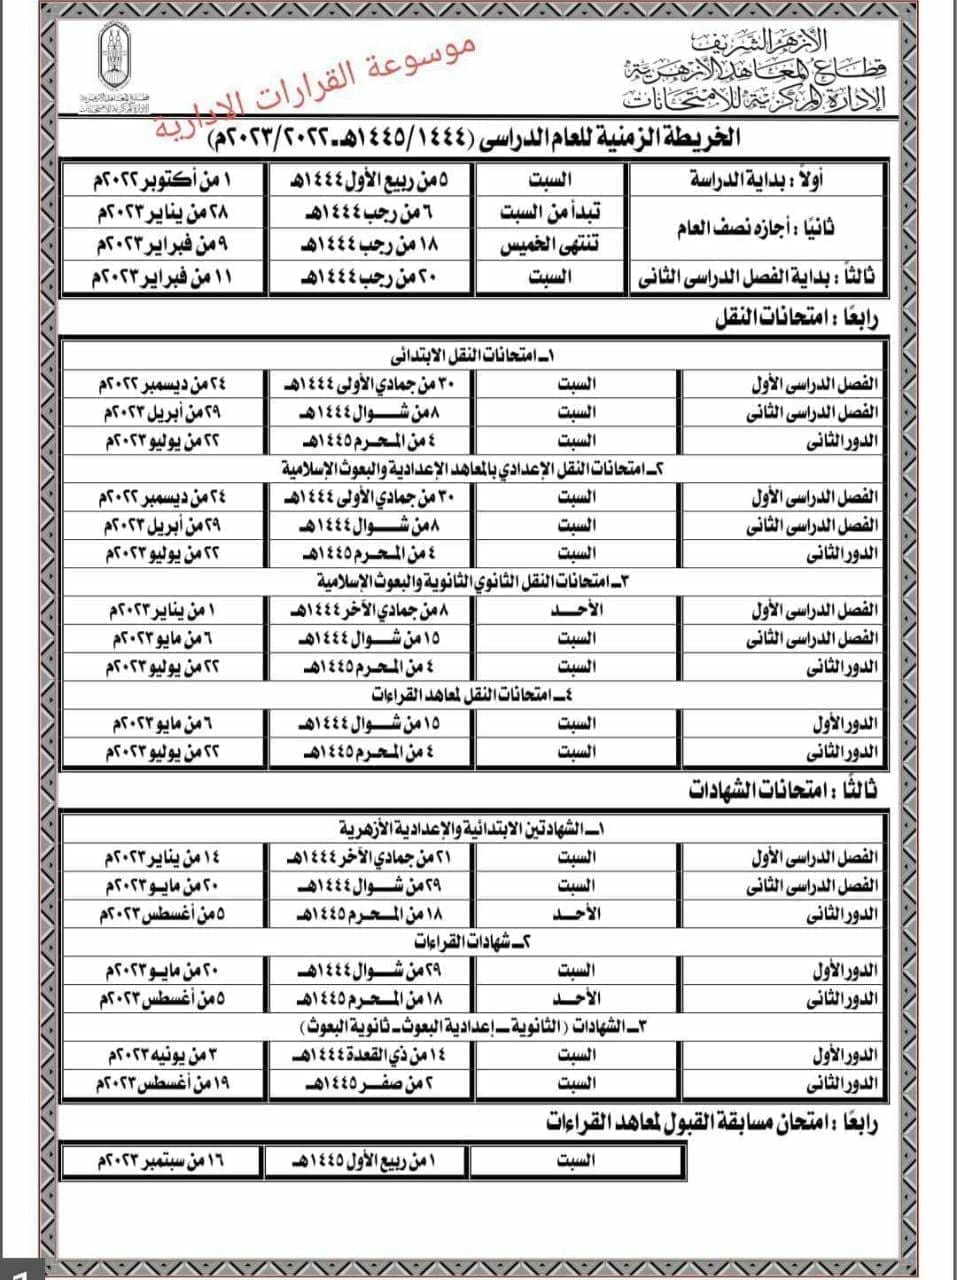 الأزهر الشريف
قطاع المعاهد الأزهرية
الإدارة المركزية للامتحانات
قطاع المعاهد الأزهرية
الإدارة المركزية للامتحانات
موسوعة القرارات الادارية
الخريطة الزمنية للعام الدراسى (١٤٤٥/١٤٤٤هـ-٢٠٢٣/٢٠٢٢م)
أولاً : بداية الدراسة السبت ٥ من ربيع الأول ١٤٤٤هـ ١ من أكتوبر ٢٠٢٢م
ثانيًا : أجازه نصف العام تبدأ من السبت ٦ من رجب ١٤٤٤هـ ٢٨ من يناير ٢٠٢٣م
تنتهى الخميس ١٨ من رجب ١٤٤٤هـ ٩ من فبراير ٢٠٢٣م
ثالثاً : بداية الفصل الدراسى الثانى السبت ٢٠ من رجب ١٤٤٤هـ ١١ من فبراير ٢٠٢٣م
رابعًا : امتحانات النقل
١ـ امتحانات النقل الابتدائى
الفصل الدراسى الأول السبت ٣٠ من جمادي الأولى ١٤٤٤هـ ٢٤ من ديسمبر ٢٠٢٢م
الفصل الدراسى الثانى السبت ٨ من شـــوال ١٤٤٤هـ ٢٩ من أبريل ٢٠٢٣م
الدور الثانى السبت ٤ من المـحـرم ١٤٤٥هـ ٢٢ من يوليو ٢٠٢٣م
٢ـ امتحانات النقل الإعدادي بالمعاهد الإعدادية والبعوث الإسلامية
الفصل الدراسى الأول السبت ٣٠ من جمادي الأولى ١٤٤٤هـ ٢٤ من ديسمبر ٢٠٢٢م
الفصل الدراسى الثانى السبت ٨ من شـــوال ١٤٤٤هـ ٢٩ من أبريل ٢٠٢٣م
الدور الثانى السبت ٤ من المـحـرم ١٤٤٥هـ ٢٢ من يوليو ٢٠٢٣م
٣ـ امتحانات النقل الثانوي الثانوية والبعوث الإسلامية
الفصل الدراسى الأول الأحــد ٨ من جمادي الآخر ١٤٤٤هـ ١ من يناير ٢٠٢٣م
الفصل الدراسى الثانى السبت ١٥ من شـــوال ١٤٤٤هـ ٦ من مايو ٢٠٢٣م
الدور الثانى السبت ٤ من المـحـرم ١٤٤٥هـ ٢٢ من يوليو ٢٠٢٣م
٤ـ امتحانات النقل لمعاهد القراءات
الدور الأول السبت ١٥ من شـــوال ١٤٤٤هـ ٦ من مايو ٢٠٢٣م
الدور الثانى السبت ٤ من المـحـرم ١٤٤٥هـ ٢٢ من يوليو ٢٠٢٣م
ثالثًا : امتحانات الشهادات
١ـ الشهادتين الابتدائية والإعدادية الأزهرية
الفصل الدراسى الأول السبت ٢١ من جمادي الآخر ١٤٤٤هـ ١٤ من يناير ٢٠٢٣م
الفصل الدراسى الثانى السبت ٢٩ من شـــوال ١٤٤٤هـ ٢٠ من مايـو ٢٠٢٣م
الدور الثانى الأحــد ١٨ من المـحـرم ١٤٤٥هـ ٥ من أغسطس ٢٠٢٣م
٢ـ شهادات القراءات
الدور الأول السبت ٢٩ من شـــوال ١٤٤٤هـ ٢٠ من مايـو ٢٠٢٣م
الدور الثانى الأحــد ١٨ من المـحـرم ١٤٤٥هـ ٥ من أغسطس ٢٠٢٣م
٣ـ الشهادات (الثانوية ـ إعدادية البعوث ـ ثانوية البعوث)
الدور الأول السبت ١٤ من ذي القعدة ١٤٤٤هـ ٣ من يونيه ٢٠٢٣م
الدور الثانى السبت ٢ من صفـر ١٤٤٥هـ ١٩ من أغسطس ٢٠٢٣م
رابعًا : امتحان مسابقة القبول لمعاهد القراءات
السبت ١ من ربيع الأول ١٤٤٥هـ ١٦ من سبتمبر ٢٠٢٣م